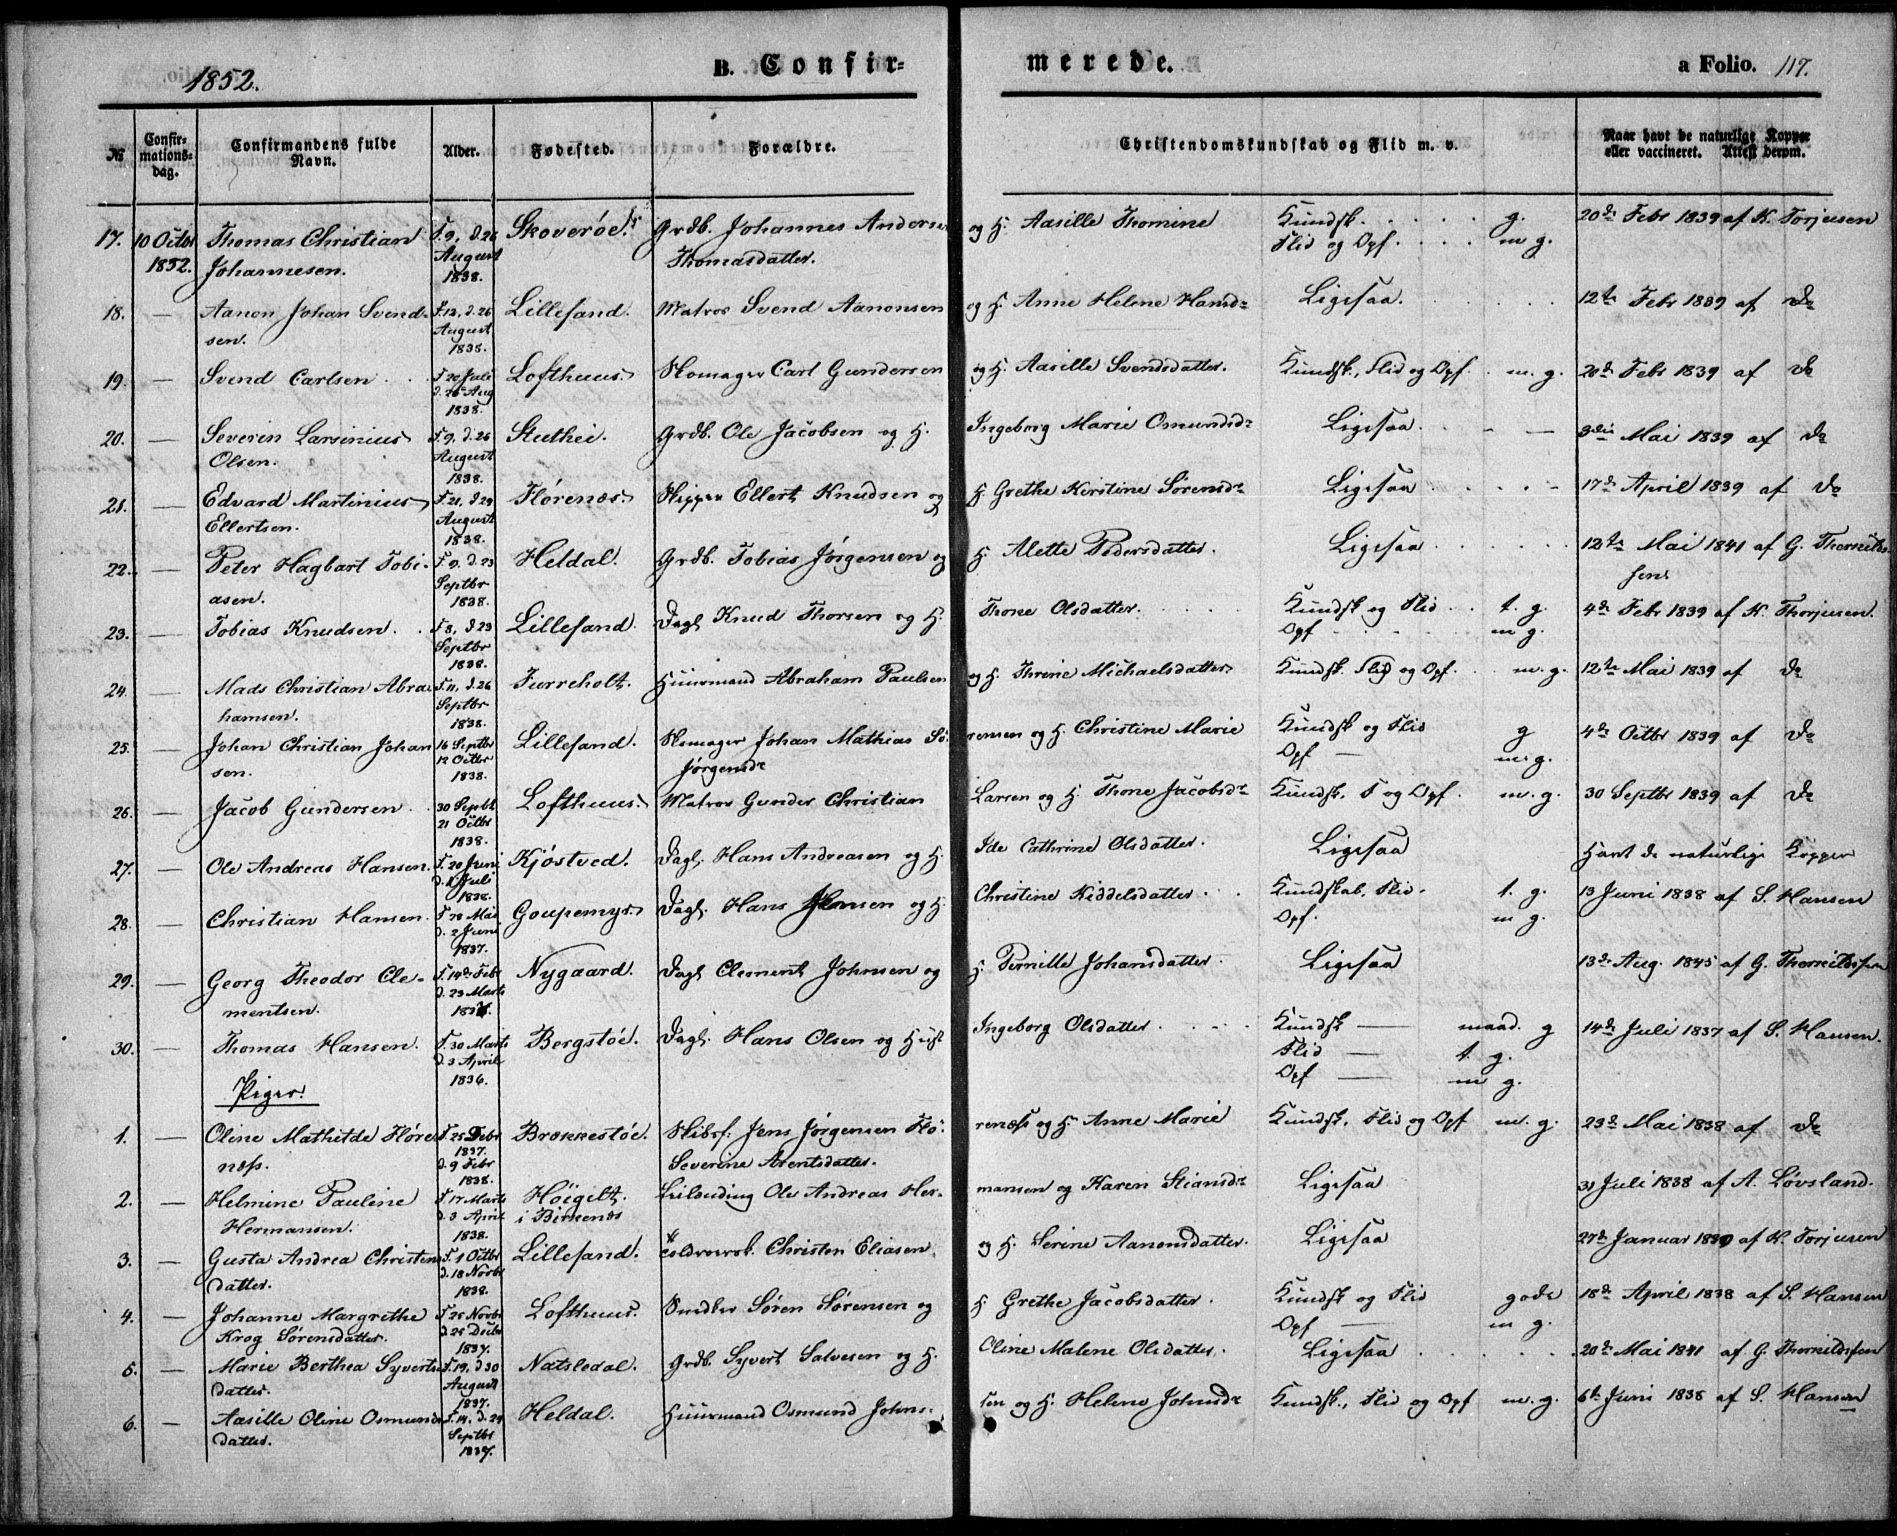 1852.
B. Confir-
merede.
a Folio. 117.
No
Confir-
mations-
dag.
Confirmandens fulde
Navn.
Alder.
Fødested.
Forældre.
Christendomskundskab og Flid m. v.
Naar havt de naturlige Kopper
eller vaccineret. Attest derom.
17. 10 Octbr Thomas Christian F. 9. d. 26 Skoverøe. Grdb. Johannes Anders og H. Aasille Thomine Kundsk. . . . . g. 20de Febr 1839 af K. Torjusen
1852. Johannesen. August Thomasdatter. Flid og Opf. . . . m g.
1838.
18. — Aanon Johan Svend- F. 12. d. 26 Lillesand. Matros Svend Aanonsen og H. Anne Helene Hansdr Ligesaa. 12te Febr 1839 af do
sen. August
1838.
19. — Svend Carlsen F. 20 Juli Lofthuus. Skomager Carl Gundersen og H. Aasille Svendsdatter. Kundsk., Flid og Opf. m. g. 20de Febr 1839 af do
d. 26 Aug
1838.
20. — Severin Larsinius F. 9. d. 26 Stuthei. Grdb. Ole Jacobsen og H. Ingeborg Marie Osmundsdr Ligesaa 3die Mai 1839 af do
Olsen. August
1838.
21. — Edvard Martinius F. 21. d. 29 Flørenæs. Skipper Ellert Knudsen og H. Grethe Kirstine Sørensdr Ligesaa 17de April 1839 af do
Ellertsen. August
1838.
22. — Peter Hagbart Tobi- F. 9. d. 23 Heldal. Grdb. Tobias Jørgensen og H. Alette Pedersdatter. Ligesaa 12te Mai 1841 af G. Thornilds-
asen. Septbr sen
1838.
23. — Tobias Knudsen. F. 8. d. 23 Lillesand. Dagl. Knud Thorsen og H. Thone Olsdatter. Kundsk og Flid t. g. 4de Febr 1839 af K. Thorjusen.
Septbr Opf m g.
1838.
24. — Mads Christian Abra- F. 11. d. 26 Furreholt. Huusmand Abraham Paulsen og H. Threne Michaelsdatter Kundsk. Flid og Opf. m. g. 12te Mai 1839 af do
hamsen. Septbr
1838.
25. — Johan Christian Johan 16 Septbr Lillesand. Skomager Johan Mathias Sø- rensen og H. Christine Marie Kundsk og Flid g 4de Octbr 1839 af do
sen. 12 Octbr Jørgensdr Opf — m. g.
1838.
26. — Jacob Gundersen 30 Septbr Lofthuus. Matros Gunder Christian Larsen og H. Thone Jacobsdr Kundsk, F og Opf. m. g. 30 Septbr 1839 af do
21 Octbr
1838.
27. — Ole Andreas Hansen. F. 20 Juni Kjøstved. Dagl. Hans Andreasen og H. Ide Cathrine Olsdatter. Ligesaa Havt de naturlige Kopper
d. 1 Juli
1838.
28. — Christian Hansen. F. 28 Mai Goupemyr. Dagl. Hans Jensen og H. Christine Kiddelsdatter. Kundskab, Flid. t. g. 13 Juni 1838 af S. Hansen
d. 2 Juni Opf. m g.
1837.
29. — Georg Theodor Cle- F. 14de Febr Nygaard. Dagl. Clement Johnsen og H. Pernille Johansdatter. Ligesaa 13de Aug. 1845 af G. Thornildssen
mentsen. d. 23 Marts
30. — Thomas Hansen. F. 30 Marts Bergstøe. Dagl. Hans Olsen og Hust Ingeborg Olsdatter. Kundsk — maad. g 14de Juli 1837 af S. Hansen.
d. 3 April Flid — t. g.
1836. Opf — m g.
Piger.
1. — Oline Mathilde Fløre F. 25 Debr Brækkestøe. Skibsf. Jens Jørgensen Flø- renæss og H. Anne Marie Kundsk. Flid og Opf m. g. 23de Mai 1838 af do
næss. 1837. d. 9 Febr Severine Arentsdatter.
1838.
2. — Helmine Pauline F. 17 Marts Høigilt. Ole Andreas Her- mansen og Karen Stiansdr Ligesaa 31 Juli 1838 af A. Løvsland.
Hermansen. d. 3 April i Birkenes
1838.
3. — Gusta Andrea Christens F. 1 Octbr Lillesand. Christen Eliasen og H. Serine Aanonsdatter. Ligesaa 27de Januar 1839 af K. Torjusen
datter. d. 18 Novbr
1838.
4. — Johanne Margrethe F. 25 Novbr Lofthuus. Snedker Søren Sørensen og H Grethe Jacobsdatter. Kundsk og Flid gode 18de April 1838 af S. Hansen
Krog Sørensdatter. d. 25 Decbr Opf — m g.
1837.
5. — Marie Berthea Syverts F. 19. d. 30 Natsledal. Grdb. Syvert Salvesen og H. Oline Malene Olsdatter. Ligesaa 20de Mai 1841 af G. Thornildssen
datter. August
1837.
6. — Aasille Oline Osmunds F. 14. d. 24 Heldal. Huusmand Osmund Johns- sen og H. Helene Johnsdr Kundsk., Flid og Opf m. g. 6te Juni 1838 af S. Hansen
datter. Septbr
1837.